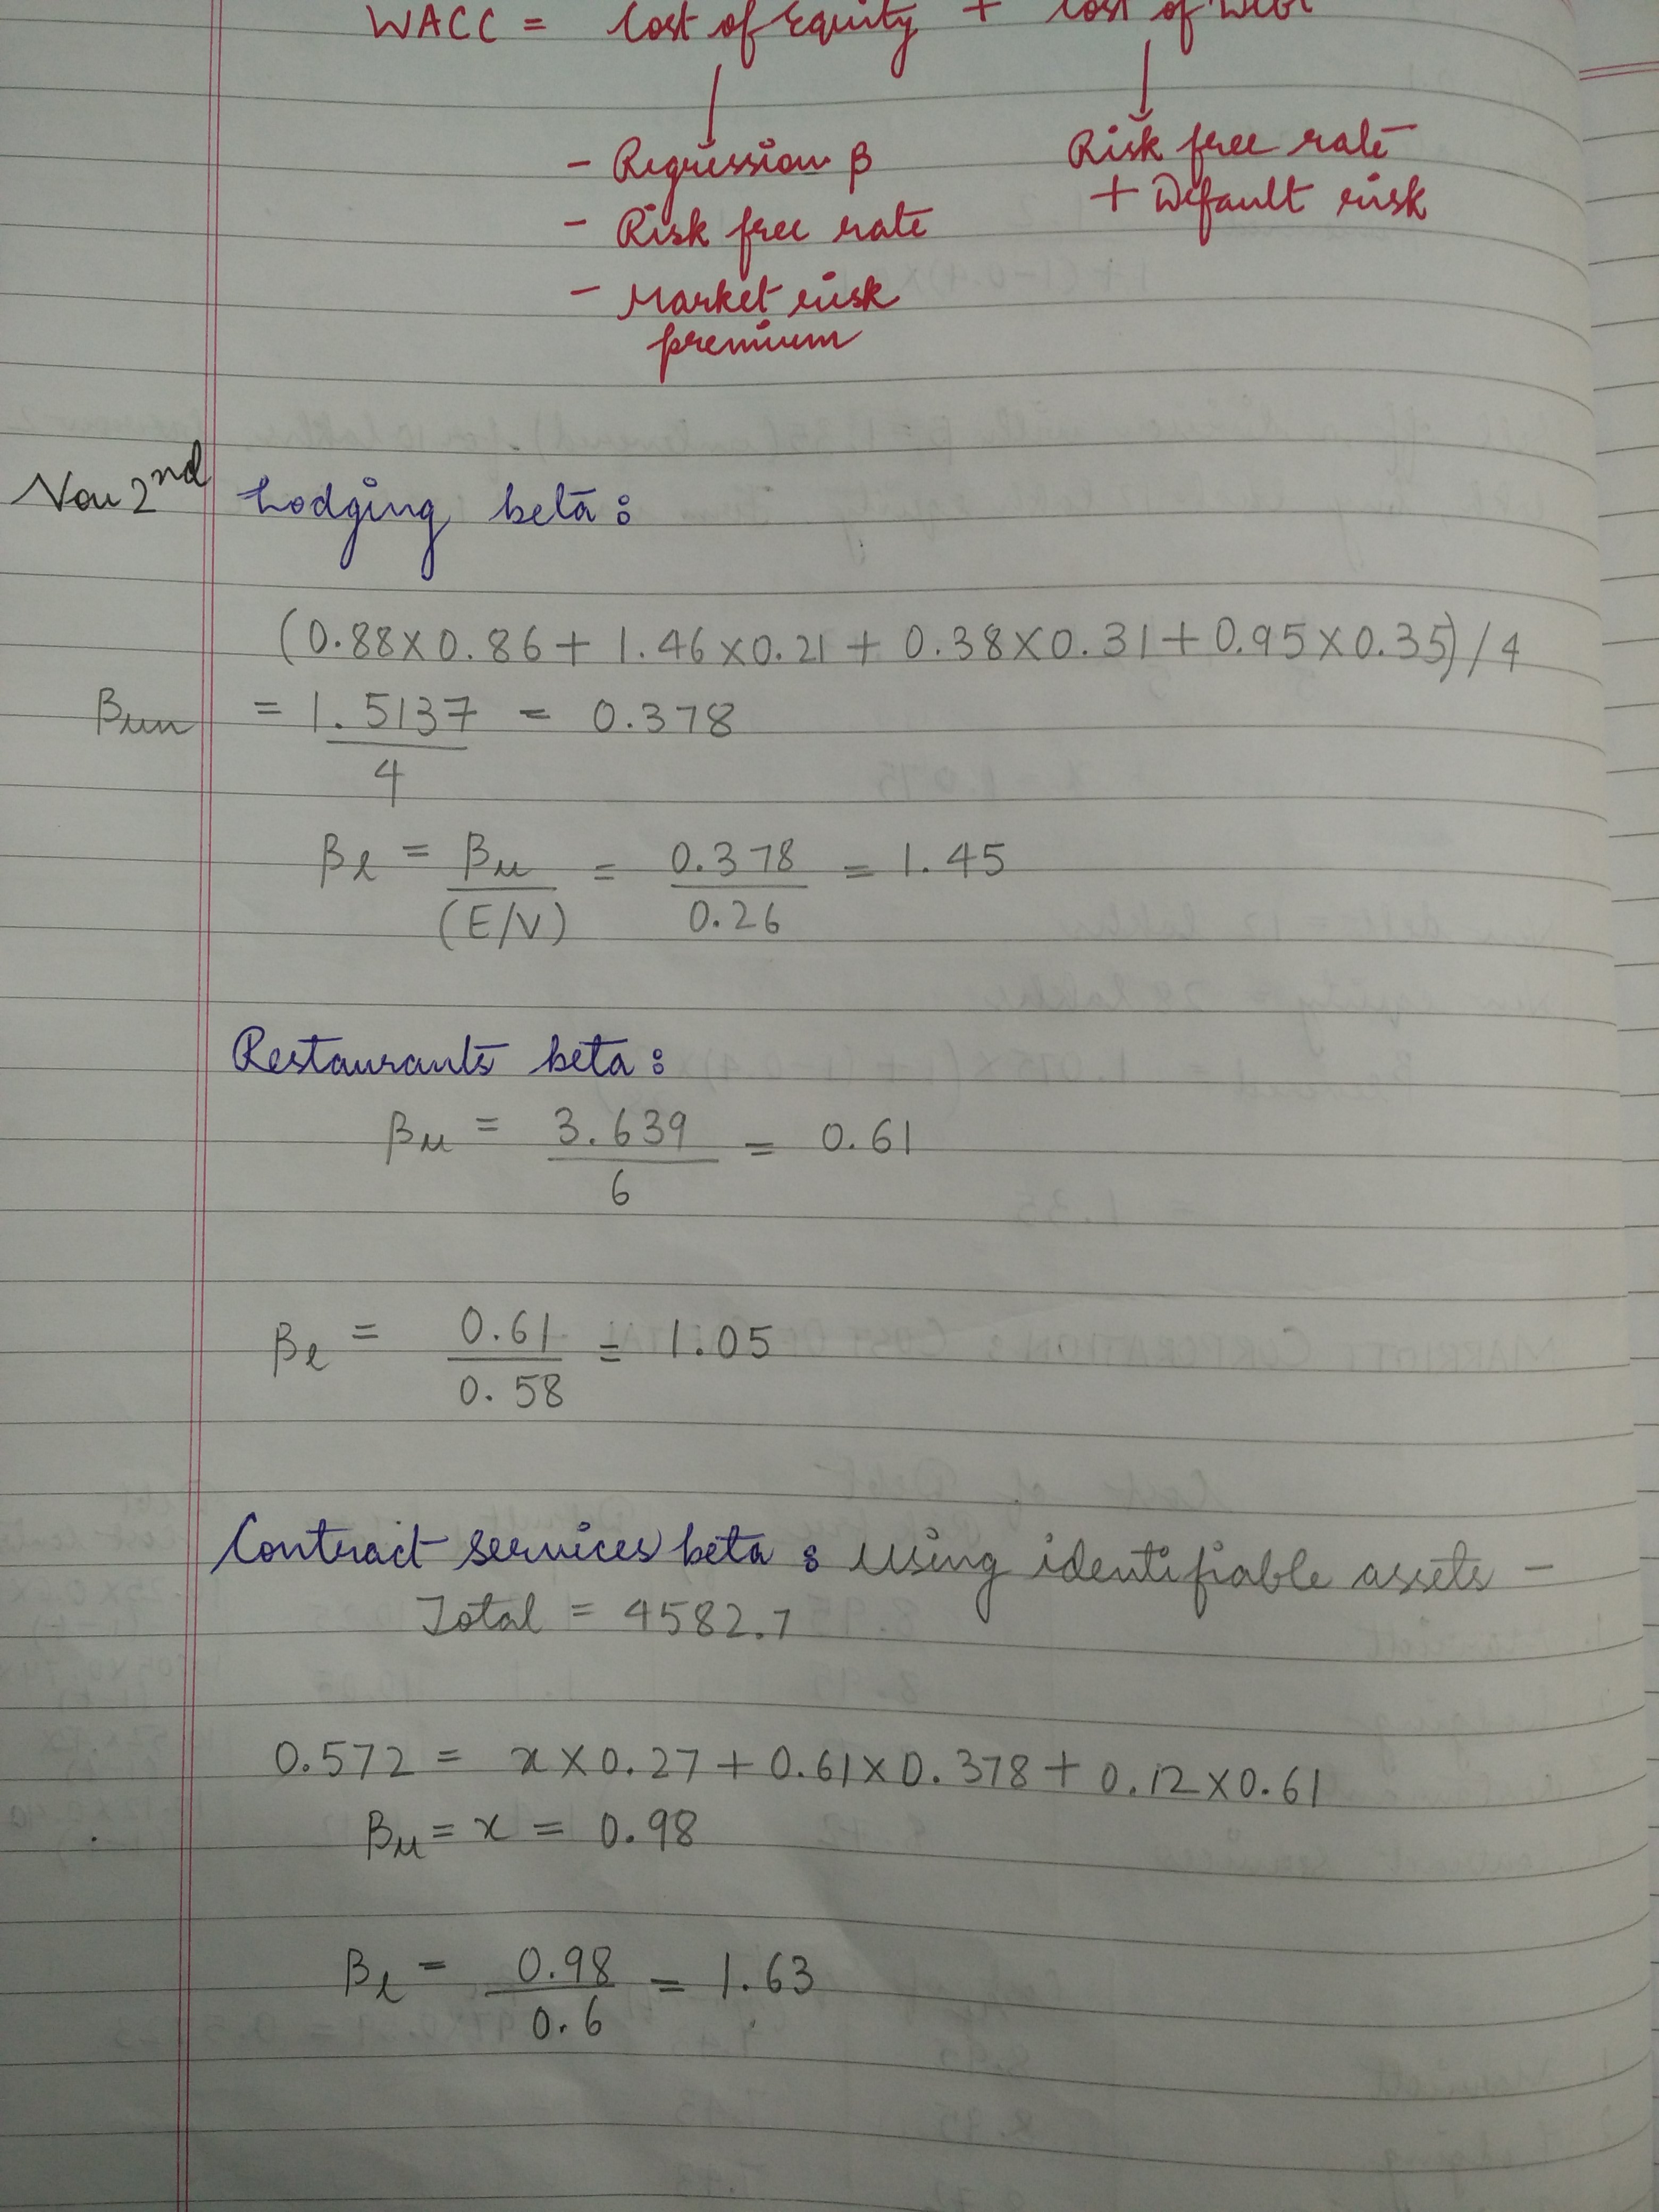 WACC = Cost of Equity + Cost of Debt
- Regression β
Risk free rate
+ Default risk
- Risk free rate
- Market risk
premium
Nov 2nd Lodging beta:
(0.88×0.86 + 1.46×0.21 + 0.38×0.31 + 0.95×0.35)/4
βun = 1.5137/4 = 0.378
βl = βu/(E/V) = 0.378/0.26 = 1.45
Restaurants beta:
βu = 3.639/6 = 0.61
βl = 0.61/0.58 = 1.05
Contract services beta: using identifiable assets -
Total = 4582.7
0.572 = x×0.27 + 0.61×0.378 + 0.12×0.61
βu = x = 0.98
βl = 0.98/0.6 = 1.63